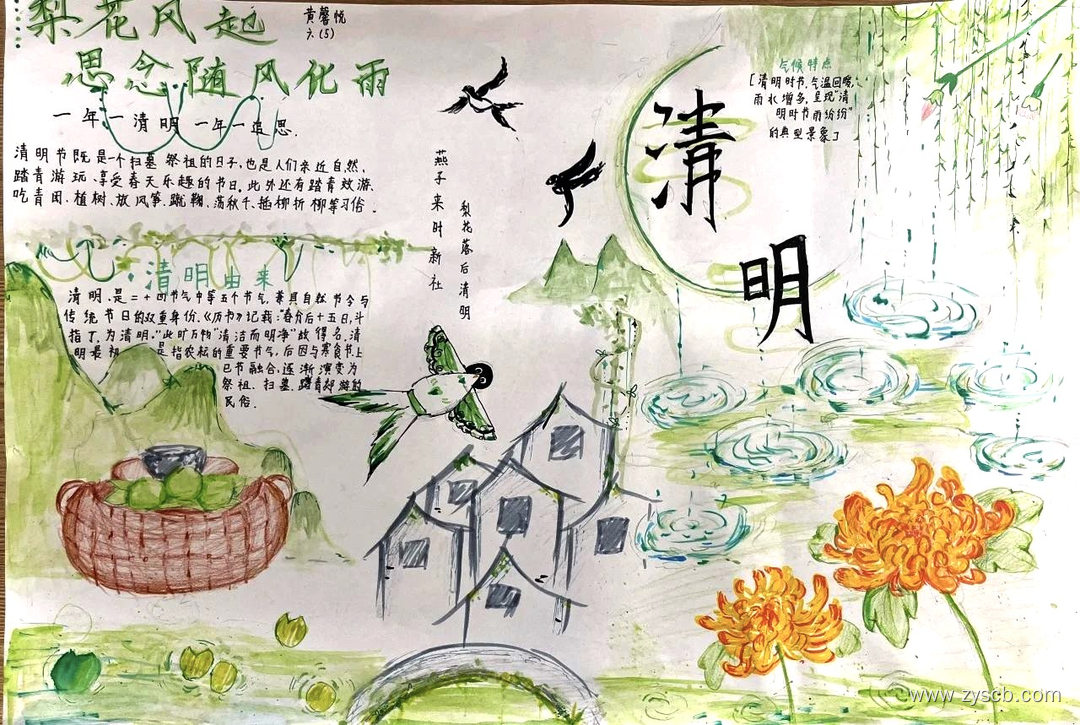 梨花风起
思念随风化雨
黄馨悦
六.(5)
一年一清明 一年一追思.
清明节既是一个扫墓祭祖的日子,也是人们亲近自然,
踏青游玩、享受春天乐趣的节日.此外还有踏青郊游、
吃青团、植树、放风筝、蹴鞠、荡秋千、插柳折柳等习俗.
清明由来
清明,是二十四节气中第五个节气,兼具自然节令与
传统节日的双重身份.《历书》记载:"春分后十五日,斗
指丁,为清明."此时万物"清洁而明净"故得名.清
明最初 是指农耘的重要节气,后因与寒食节上
巳节融合,逐渐演变为
祭祖、扫墓、踏青郊游的
民俗.
燕子来时新社
梨花落后清明
清明
气候特点
[清明时节,气温回暖,
雨水增多,呈现"清
明时节雨纷纷"
的典型景象]
www.zyscb.com